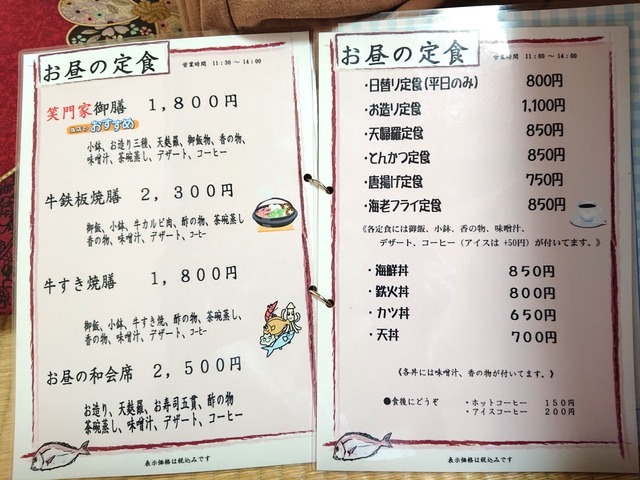 お昼の定食
営業時間 11:30～14:00
笑門家御膳 1,800円
おすすめ
小鉢、お造り三種、天麩羅、御飯物、香の物、
味噌汁、茶碗蒸し、デザート、コーヒー
牛鉄板焼膳 2,300円
御飯、小鉢、牛カルビ肉、酢の物、茶碗蒸し
香の物、味噌汁、デザート、コーヒー
牛すき焼膳 1,800円
御飯、小鉢、牛すき焼、酢の物、茶碗蒸し、
香の物、味噌汁、デザート、コーヒー
お昼の和会席 2,500円
お造り、天麩羅、お寿司五貫、酢の物
茶碗蒸し、味噌汁、デザート、コーヒー
表示価格は税込みです
お昼の定食
営業時間 11:00～14:00
・日替り定食(平日のみ) 800円
・お造り定食 1,100円
・天婦羅定食 850円
・とんかつ定食 850円
・唐揚げ定食 750円
・海老フライ定食 850円
《各定食には御飯、小鉢、香の物、味噌汁、
デザート、コーヒー（アイスは +50円）が付いてます。》
・海鮮丼 850円
・鉄火丼 800円
・カツ丼 650円
・天丼 700円
《各丼には味噌汁、香の物が付いてます。》
●食後にどうぞ ・ホットコーヒー 150円
・アイスコーヒー 200円
表示価格は税込みです